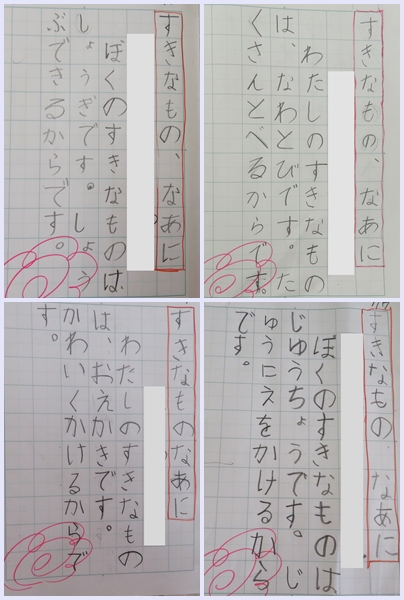 すきなもの、なあに
ぼくのすきなものは
しょうぎです。しょう
ぶできるからです。
すきなもの、なあに
わたしのすきなもの
は、なわとびです。た
くさんとべるからです。
すきなものなあに
わたしのすきなもの
は、おえかきです。
かわいくかけるからで
す。
すきなもの なあに
ぼくのすきなものは
じゆうちょうです。じ
ゆうにえをかけるから
です。